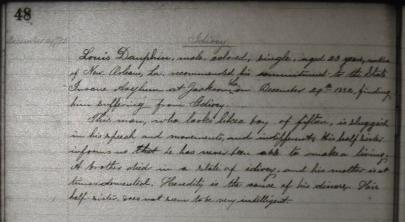 48
Idiocy.
Louis Dauphin, male, colored, single, aged 23 years, native
of New Orleans, La. recommended his commitment to the State
Insane Asylum at Jackson, La. on December 29th 1882, finding
him suffering from Idiocy.
This man, who looks like a boy of fifteen, is sluggish
in his speech and movements, and indifferent. His half sister
informs me that he has never been able to make a living.
A brother died in a state of idiocy, and his mother is at
times demented. Heredity is the cause of his disease. His
half sister does not seem to be very intelligent.